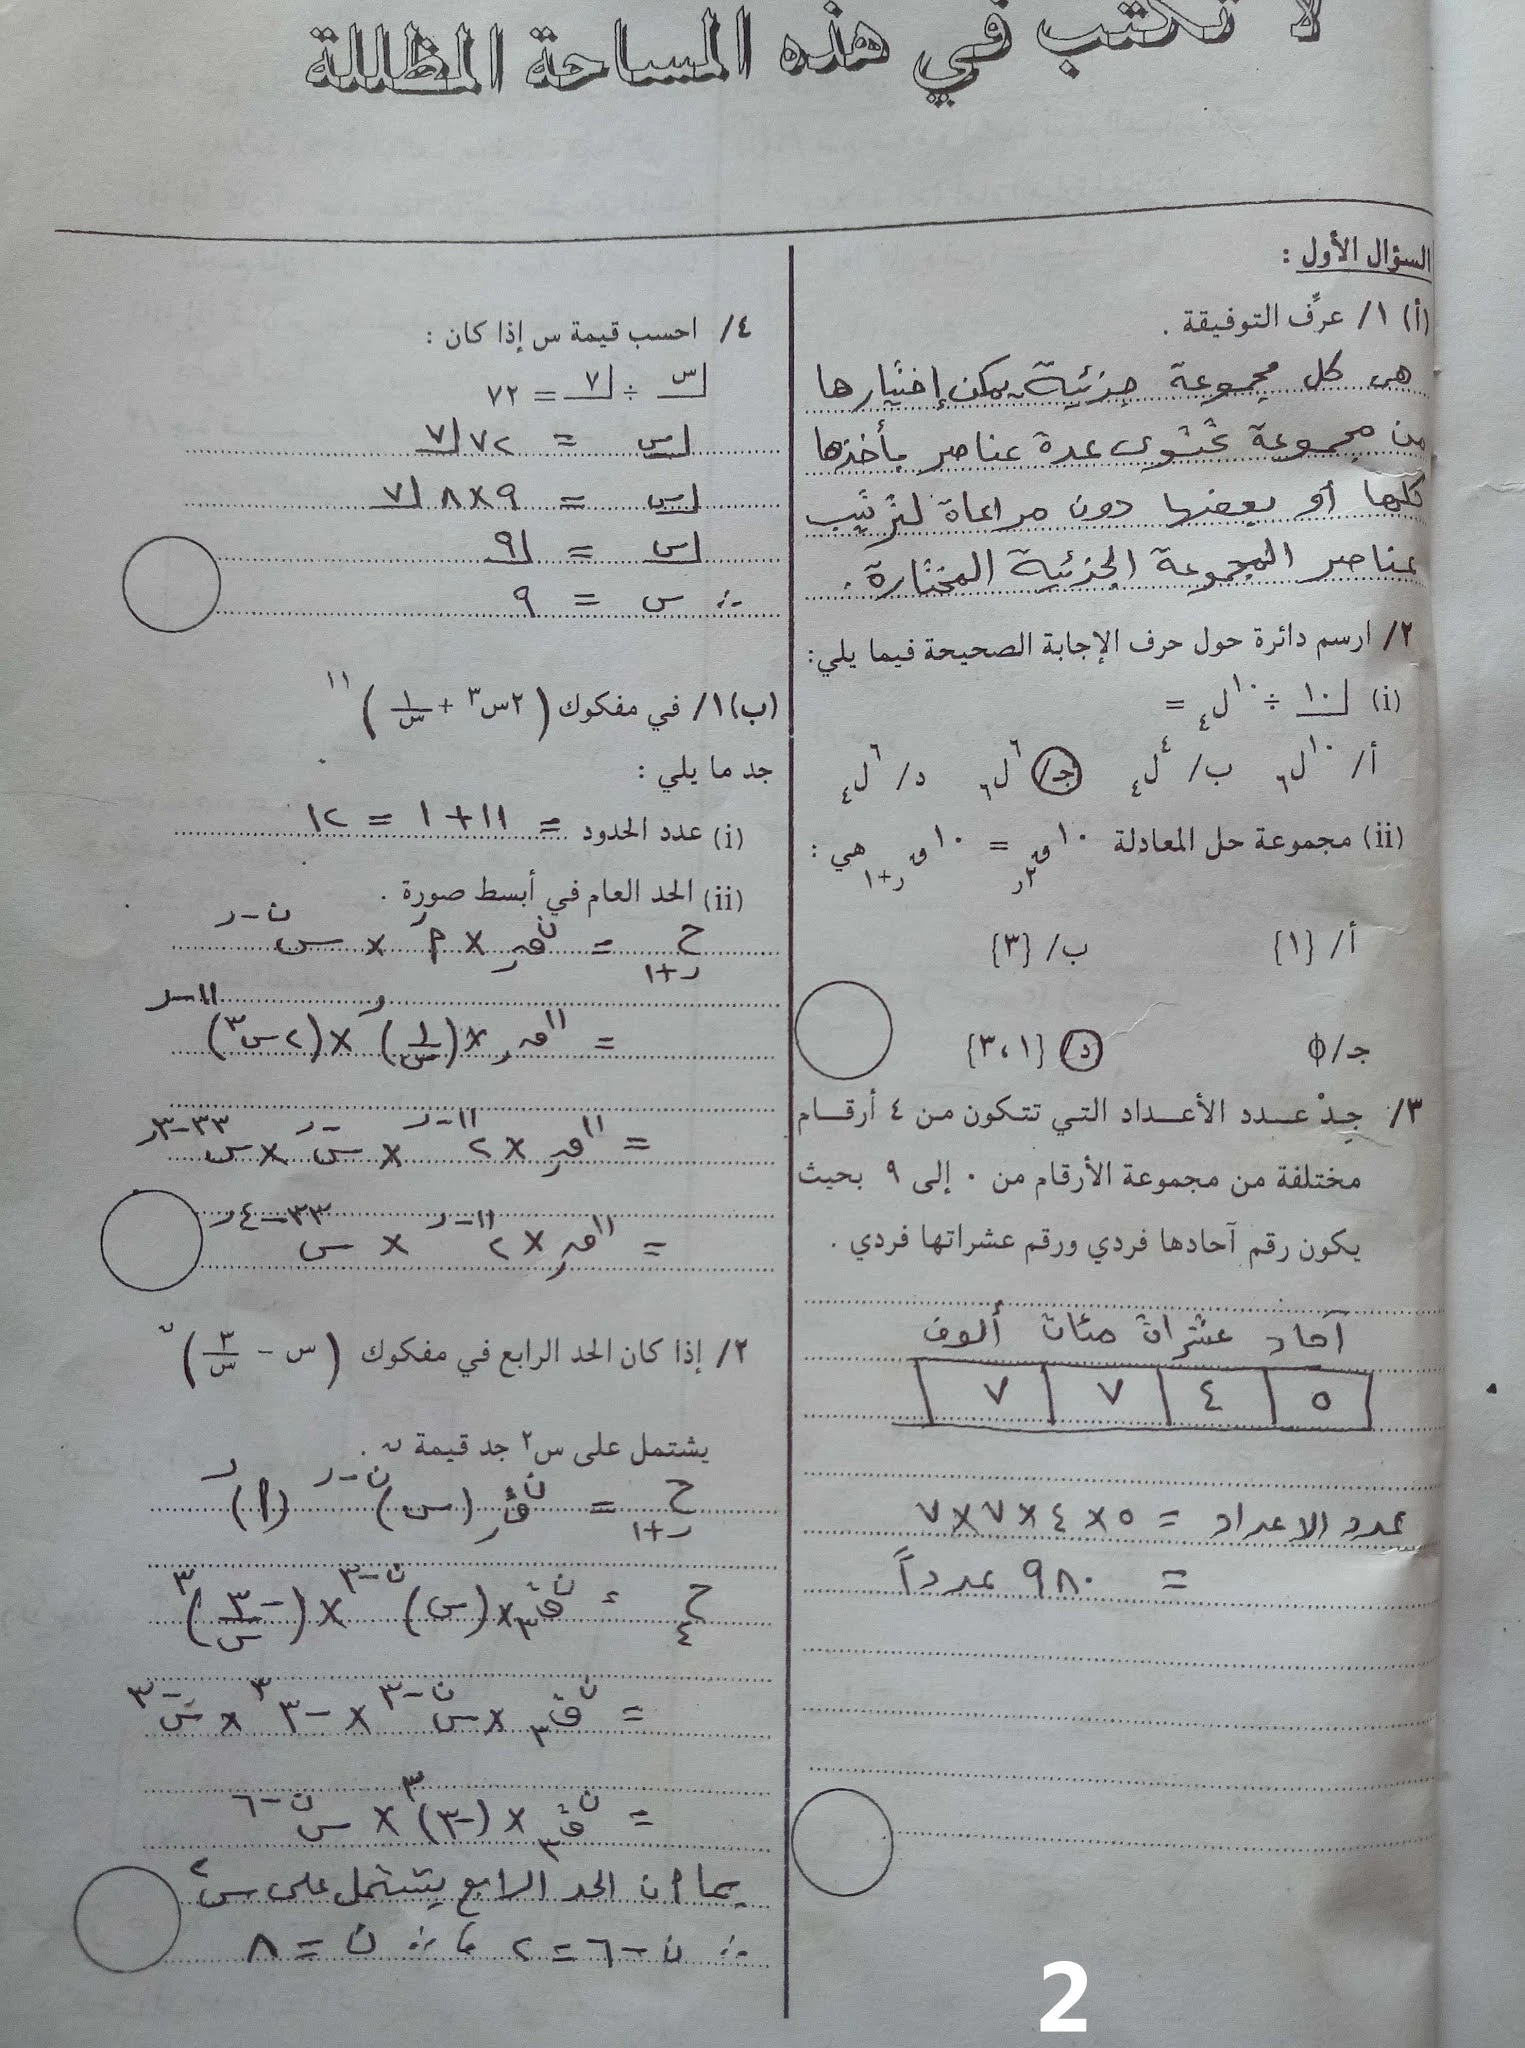 لا تكتب في هذه المساحة المظللة
السؤال الأول :
(أ) ١/ عرِّف التوفيقة .
هى كل مجموعة جزئية يمكن إختيارها
من مجموعة تحتوى عدة عناصر بأخذها
كلها أو بعضها دون مراعاة لترتيب
عناصر المجموعة الجزئية المختارة .
٢/ ارسم دائرة حول حرف الإجابة الصحيحة فيما يلي:
(i) ١٠ ÷ ١٠ل٤ =
أ/ ١٠ل٦ ب/ ٤ل٤ جـ/ ٦ل٦ د/ ٦ل٤
(ii) مجموعة حل المعادلة ١٠ق٣ر = ١٠ق ر+١ هي :
أ/ {١} ب/ {٣}
جـ/ ϕ د/ {١، ٣}
٣/ جِدْ عدد الأعداد التي تتكون من ٤ أرقام
مختلفة من مجموعة الأرقام من ٠ إلى ٩ بحيث
يكون رقم آحادها فردي ورقم عشراتها فردي .
آحاد عشرات مئات ألوف
٥ ٤ ٧ ٧
عدد الاعداد = ٥ × ٤ × ٧ × ٧
= ٩٨٠ عدداً
٤/ احسب قيمة س إذا كان :
س ÷ ٧ = ٧٢
س = ٧٢ ٧
س = ٩×٨ ٧
س = ٩
∴ س = ٩
(ب) ١/ في مفكوك (٢س٣ + ١/س)١١
جد ما يلي :
(i) عدد الحدود = ١١ + ١ = ١٢
(ii) الحد العام في أبسط صورة .
ح ر+١ = ن ق ر × أر × س ن-ر
= ١١ق ر × (١/س)ر × (٢س٣)١١-ر
= ١١ق ر × ٢ ١١-ر × س-ر × س ٣٣-٣ر
= ١١ق ر × ٢ ١١-ر × س ٣٣-٤ر
٢/ إذا كان الحد الرابع في مفكوك (س - ٣/س)ن
يشتمل على س٢ جد قيمة ن .
ح ر+١ = ن ق ر (س) ن-ر (أ)ر
ح٤ = ن ق٣ × (س) ن-٣ × (-٣/س)٣
= ن ق٣ × س ن-٣ × -٣ ٣ × س-٣
= ن ق٣ × (-٣)٣ × س ن-٦
بما أن الحد الرابع يشتمل على س٢
∴ ن - ٦ = ٢ ، ∴ ن = ٨
2